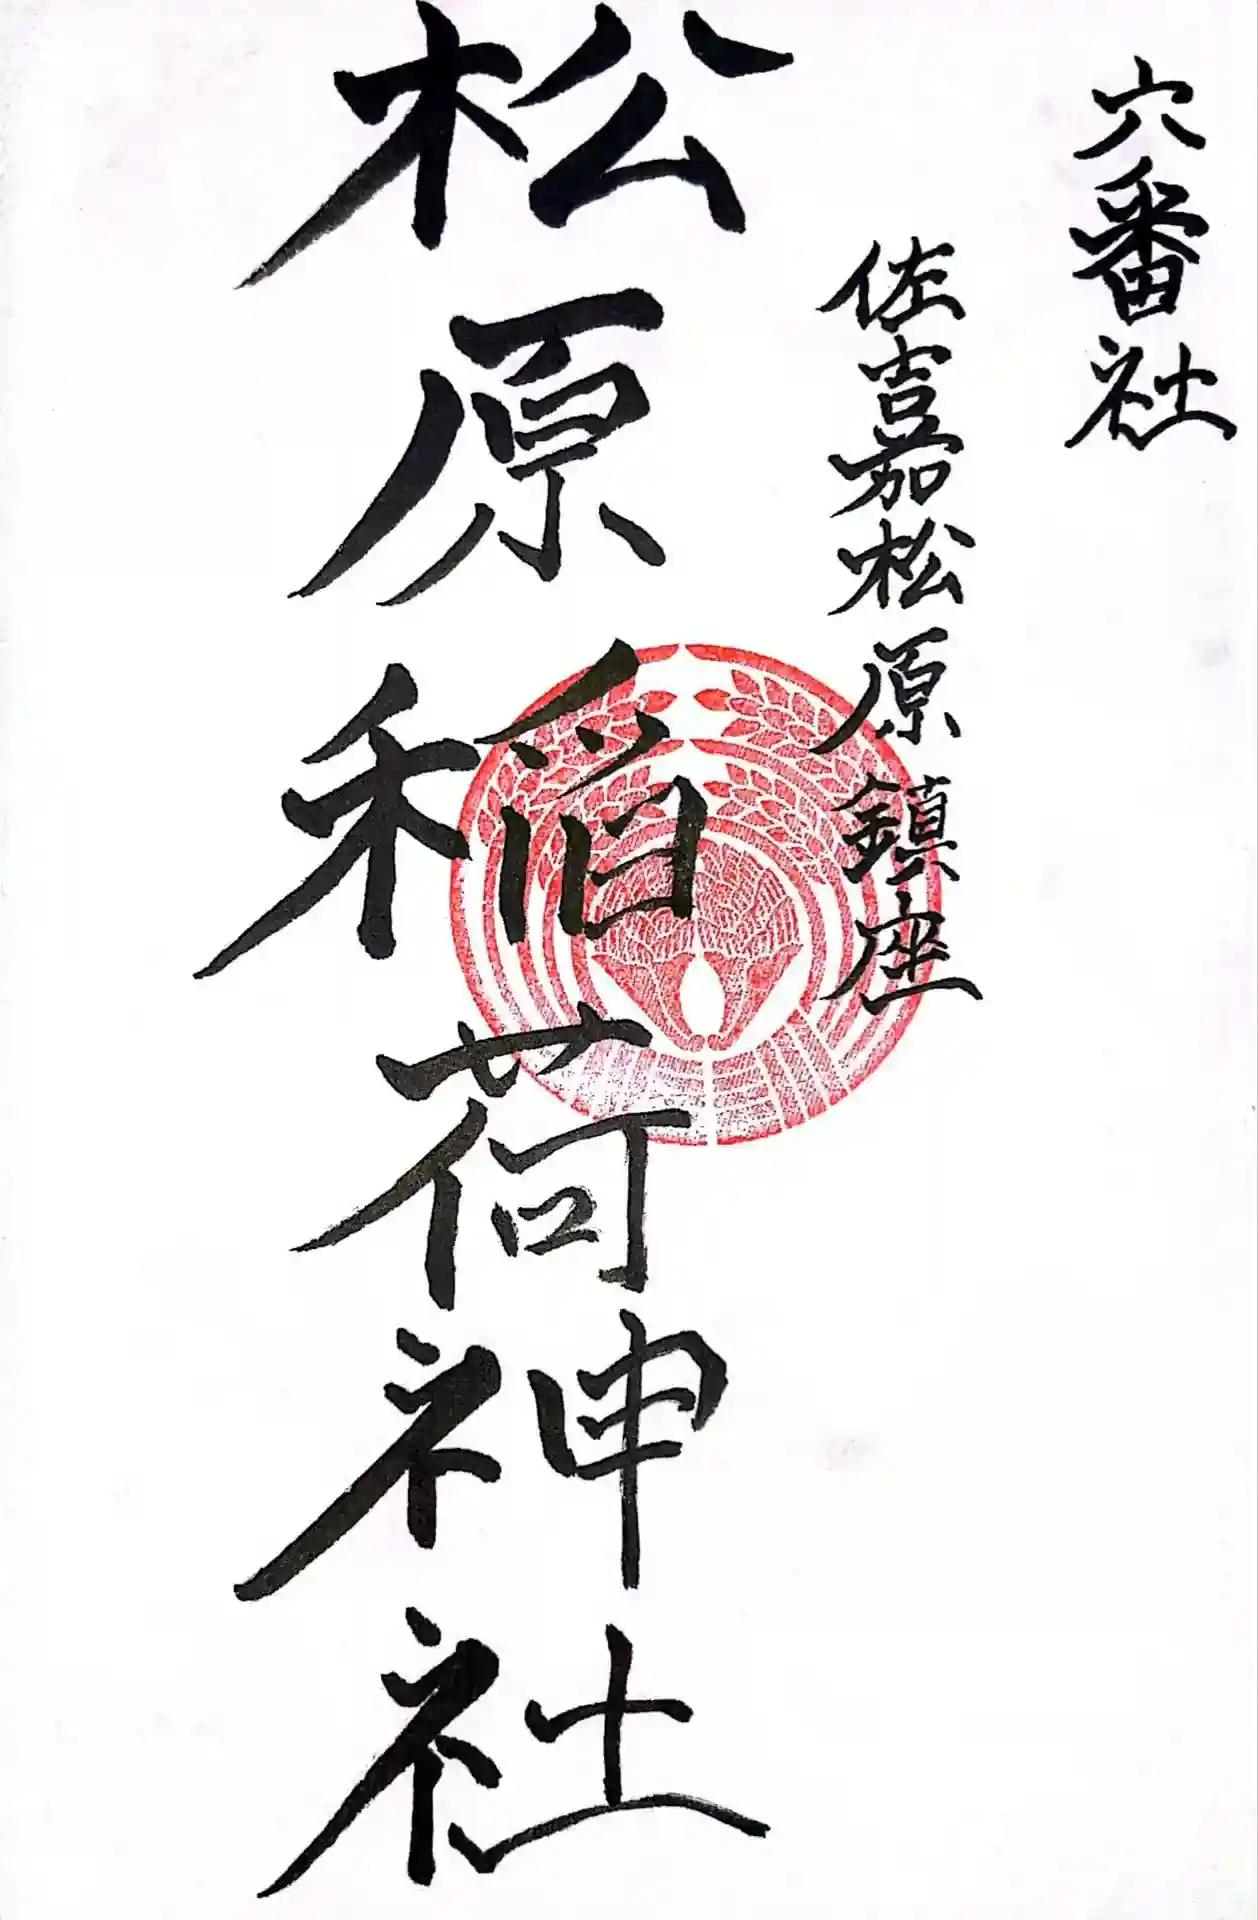 穴番社
佐嘉松原鎮座
松原稲荷神社